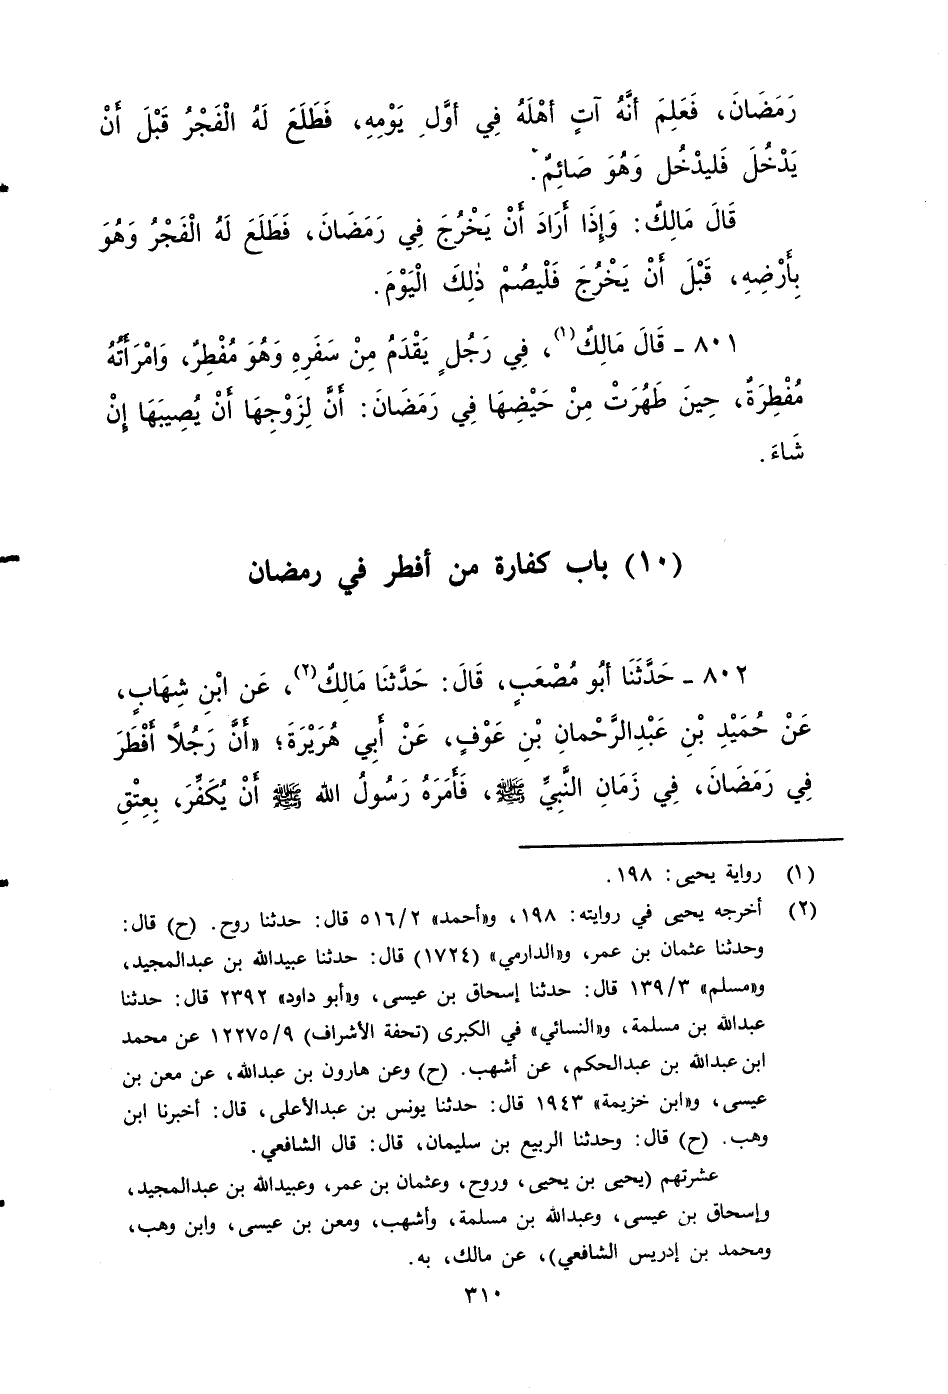 رَمَضَانَ، فَعَلِمَ أنَّهُ آتٍ أهْلَهُ فِي أوَّلِ يَوْمِهِ، فَطَلَعَ لَهُ الْفَجْرُ قَبْلَ أَنْ
يَدْخُلَ فَليدْخُل وَهُوَ صَائِمٌ.
قَالَ مَالِكٌ: وَإِذَا أَرَادَ أَنْ يَخْرُجَ فِي رَمَضَانَ، فَطَلَعَ لَهُ الْفَجْرُ وَهُوَ
بِأَرْضِهِ، قَبْلَ أَنْ يَخْرُجَ فَلْيصُمْ ذٰلِكَ الْيَوْمَ.
٨٠١ ـ قَالَ مَالِكٌ(١)، فِي رَجُلٍ يَقْدَمُ مِنْ سَفَرِهِ وَهُوَ مُفْطِرٌ، وَامْرَأَتُهُ
مُفْطِرَةٌ، حِينَ طَهُرَتْ مِنْ حَيْضِهَا فِي رَمَضَانَ: أَنَّ لِزَوْجِهَا أَنْ يُصِيبَهَا إِنْ
شَاءَ.
(١٠) باب كفارة من أفطر في رمضان
٨٠٢ ـ حَدَّثَنَا أبُو مُصْعَبٍ، قَالَ: حَدَّثنَا مَالِكٌ(٢)، عَن ابْنِ شِهَابٍ،
عَنْ حُمَيْدِ بْنِ عَبْدِالرَّحْمانِ بْنِ عَوْفٍ، عَنْ أبِي هُرَيْرَةَ؛ «أنَّ رَجُلاً أَفْطَرَ
فِي رَمَضَانَ، فِي زَمَانِ النَّبِيِّ ﷺ، فَأمَرَهُ رَسُولُ الله ﷺ أَنْ يُكَفِّرَ، بِعِتْقِ
(١) رواية يحيى: ١٩٨.
(٢) أخرجه يحيى في روايته: ١٩٨، و«أحمد» ٥١٦/٢ قال: حدثنا روح. (ح) قال:
وحدثنا عثمان بن عمر، و«الدارمي» (١٧٢٤) قال: حدثنا عبيدالله بن عبدالمجيد،
و«مسلم» ١٣٩/٣ قال: حدثنا إسحاق بن عيسى، و«أبو داود» ٢٣٩٢ قال: حدثنا
عبدالله بن مسلمة، و«النسائي» في الكبرى (تحفة الأشراف) ١٢٢٧٥/٩ عن محمد
ابن عبدالله بن عبدالحكم، عن أشهب. (ح) وعن هارون بن عبدالله، عن معن بن
عيسى، و«ابن خزيمة» ١٩٤٣ قال: حدثنا يونس بن عبدالأعلى، قال: أخبرنا ابن
وهب. (ح) قال: وحدثنا الربيع بن سليمان، قال: قال الشافعي.
عشرتهم (يحيى بن يحيى، وروح، وعثمان بن عمر، وعبيدالله بن عبدالمجيد،
وإسحاق بن عيسى، وعبدالله بن مسلمة، وأشهب، ومعن بن عيسى، وابن وهب،
ومحمد بن إدريس الشافعي)، عن مالك، به.
٣١٠